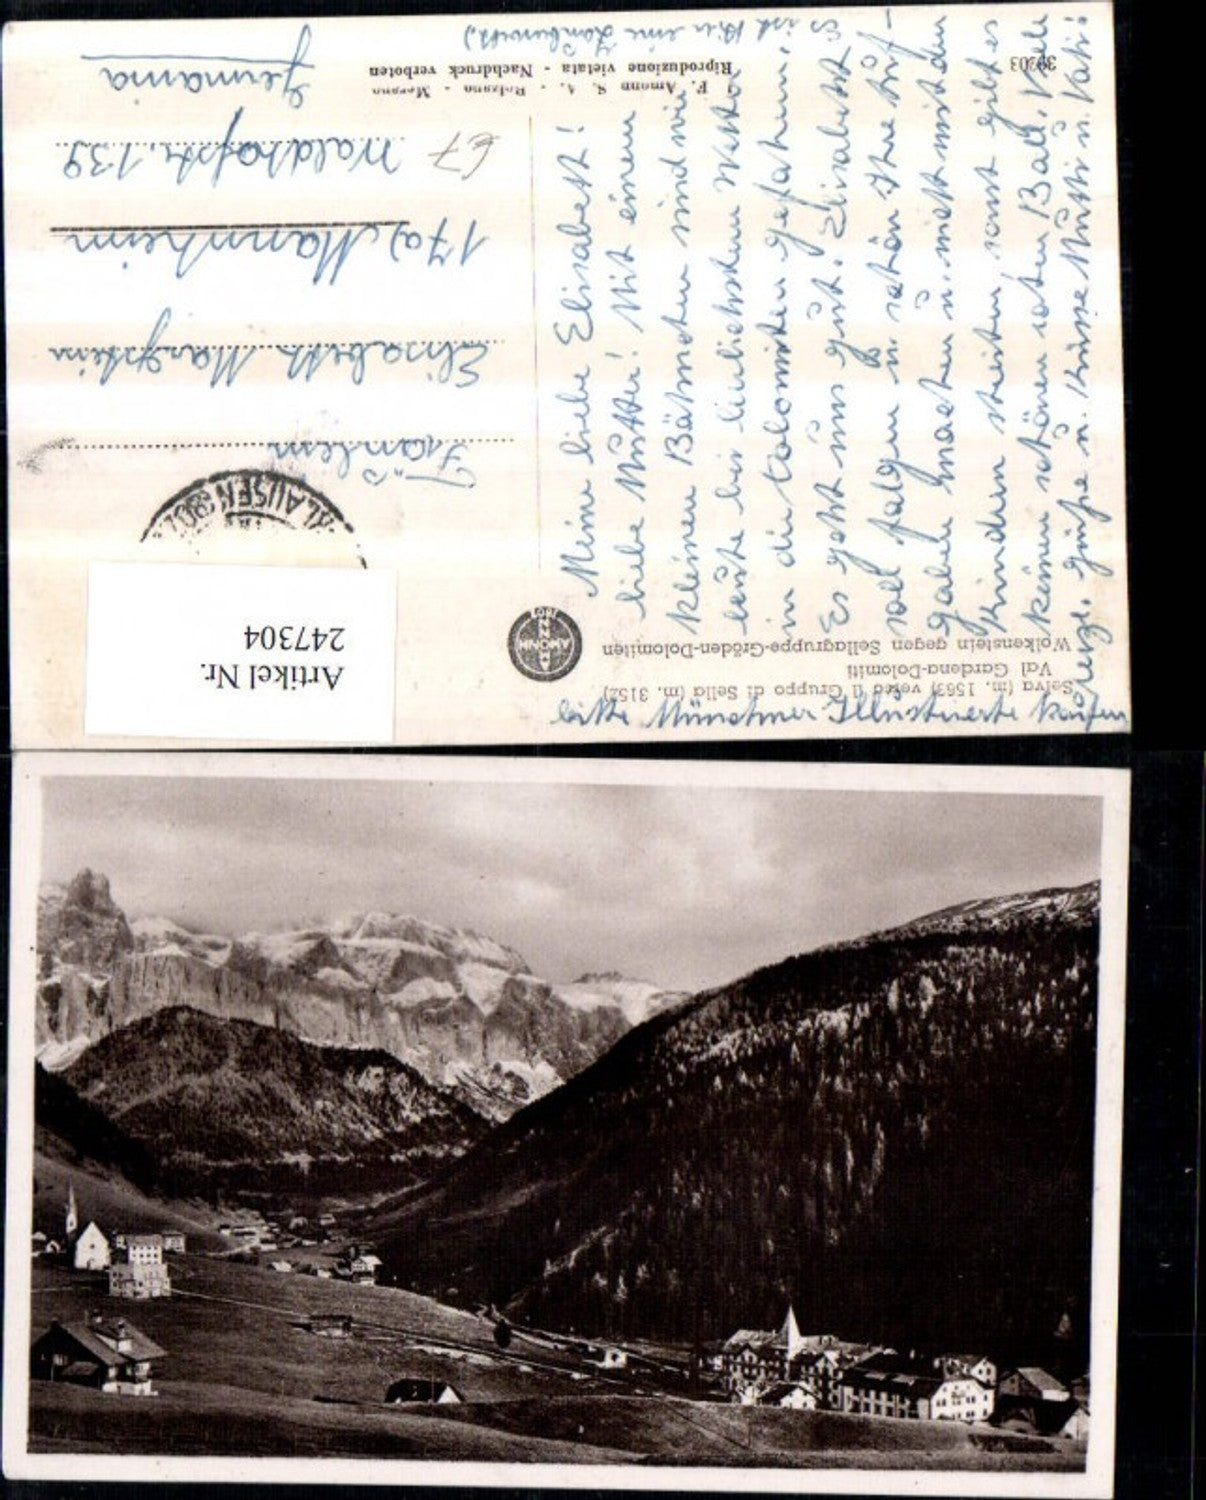 Meine liebe Elisabeth!
liebe Mutter! Mit einem
kleinen Bähnchen sind wir
heute bei herrlichstem Wetter
in die Dolomiten gefahren.
Es geht uns gut. Elisabeth
soll folgen u. schön Ihre Auf-
gaben machen u. nicht mit den
Kindern streiten, sonst gibt es
keinen schönen roten Ball. Viele
Grüße u. Küsse Mutti u. Vati!
bitte Münchner Illustrierte kaufen
Selva (m. 1563) verso il Gruppo di Sella (m. 3152)
Val Gardena-Dolomiti
Wolkenstein gegen Sellagruppe-Gröden-Dolomiten
F. Amonn S. A. - Bolzano - Merano
Riproduzione vietata - Nachdruck verboten
39303
KLAUSEN
Fräulein
Elisabeth
17a) Mannheim
Waldhofstr. 139
Germania
€7
Artikel Nr.
247304